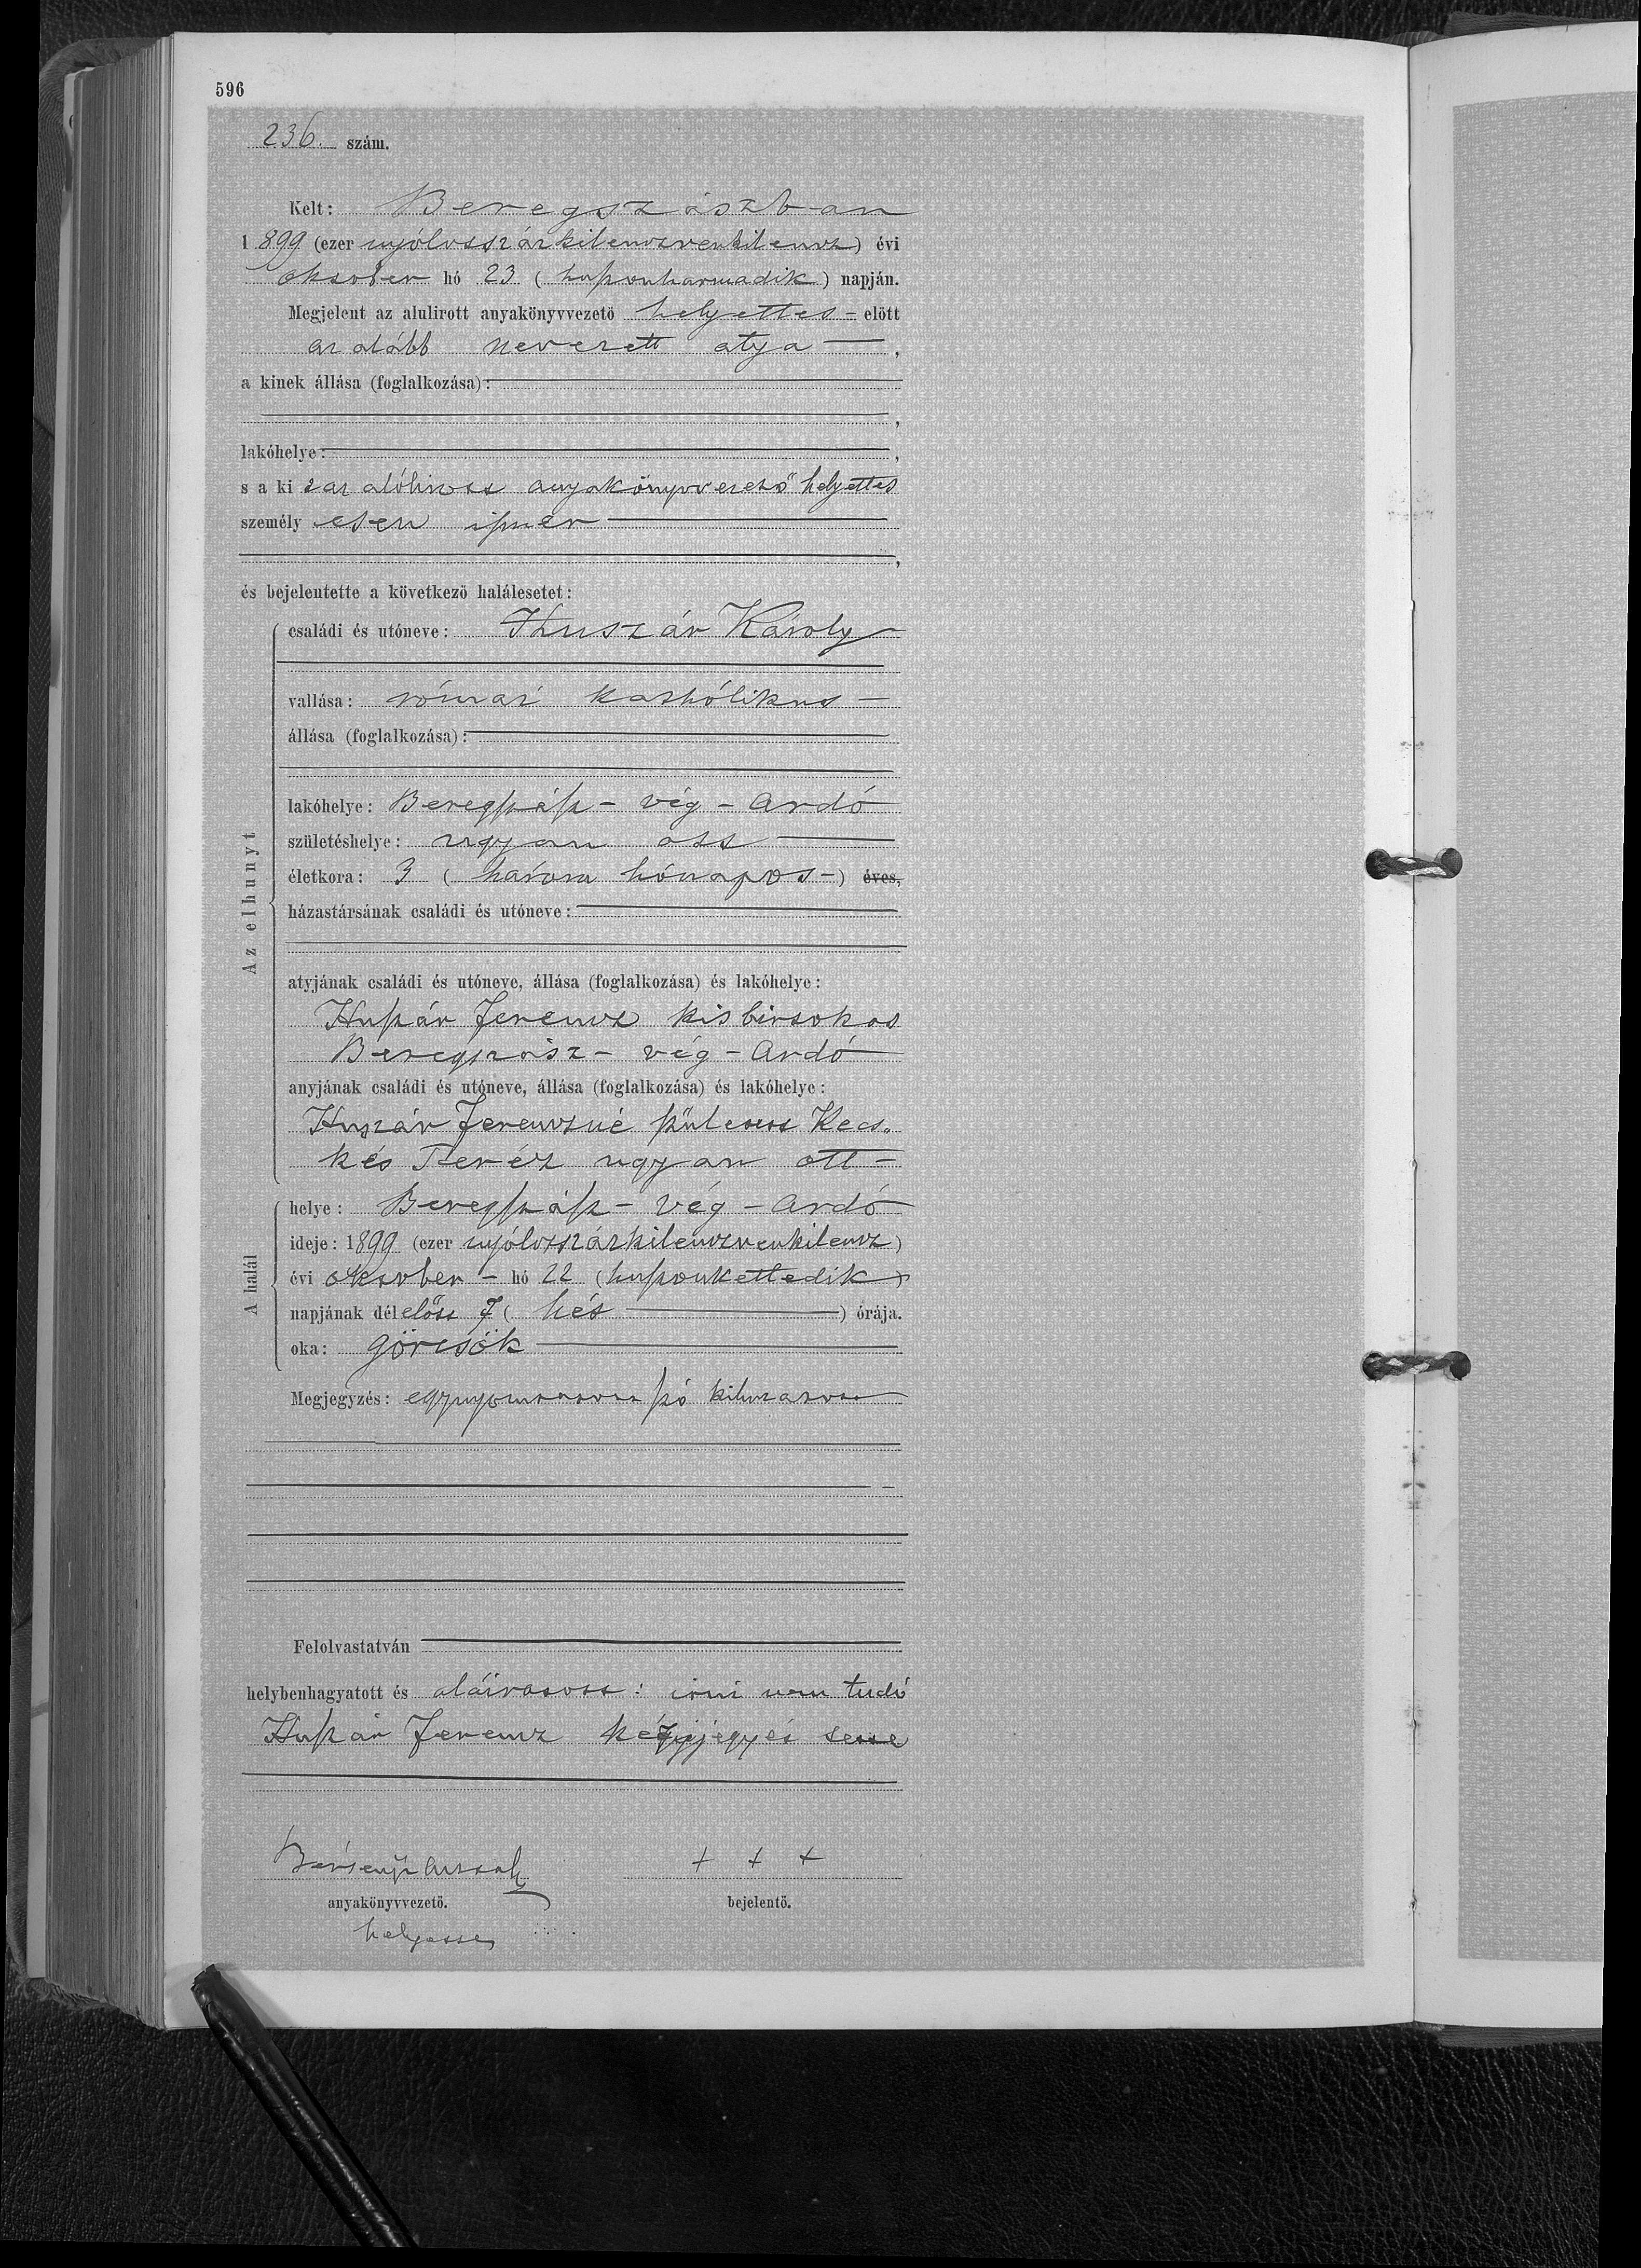 596
236. szám.
Kelt: Beregszászban
1899 (ezer nyólcszázkilenczvenkilencz) évi
október hó 23 (huszonharmadik) napján.
Megjelent az alulirott anyakönyvvezető helyettes – előtt
az alább nevezett atya — ,
a kinek állása (foglalkozása):
,
lakóhelye: ,
s a kit az alólirott anyakönyvvezető helyettes
személyesen ismer
,
és bejelentette a következő halálesetet:
Az elhunyt
családi és utóneve: Huszár Károly
vallása: római katholikus –
állása (foglalkozása):
lakóhelye: Beregszász – vég – Ardó
születéshelye: ugyan ott
életkora: 3 (három hónapos –) éves,
házastársának családi és utóneve:
atyjának családi és utóneve, állása (foglalkozása) és lakóhelye:
Huszár Ferencz kisbirtokos
Beregszász – vég – Ardó
anyjának családi és utóneve, állása (foglalkozása) és lakóhelye:
Huszár Ferenczné született Kecs-
kés Teréz ugyan ott –
A halál
helye: Beregszász – Vég – Ardó
ideje: 1899 (ezer nyólcszázkilenczvenkilencz)
évi október – hó 22 (huszonkettedik)
napjának délelőtt 7 (hét) órája.
oka: görcsök
Megjegyzés: egy nyomtatott szó kihuzatott
Felolvastatván
helybenhagyatott és aláiratott: irni nem tudó
Huszár Ferencz kézjegyét tette
Bersenyi Antal + + +
anyakönyvvezető. bejelentő.
helyettes